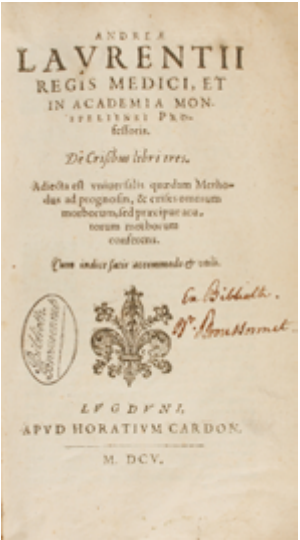 ANDREÆ
LAVRENTII
REGIS MEDICI, ET
IN ACADEMIA MON-
SPELIENSI PRO-
fessoris.
De Crisibus libri tres.
Adiecta est vniuersalis quædam Metho-
dus ad prognosin, & crises omnium
morborum, sed præcipue acu-
torum morborum
conferens.
Cum indice satis accommodo & vtili.
Ex Biblioth.
LVGDVNI,
APVD HORATIVM CARDON.
M. DCV.